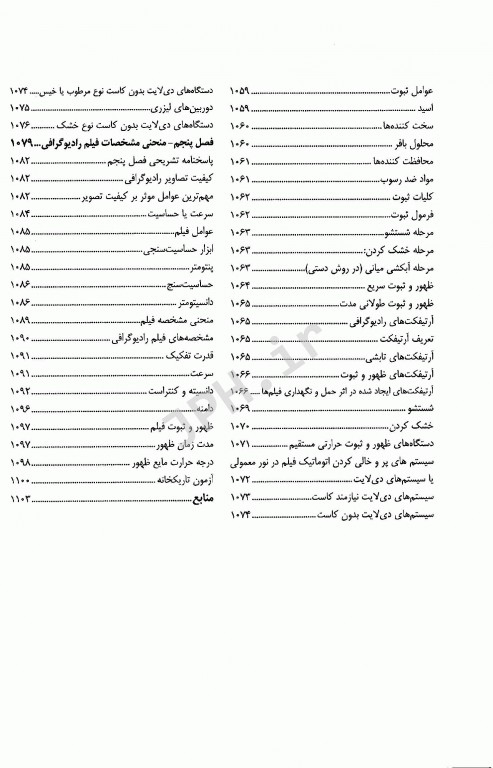 عوامل ثبوت ۱۰۵۹
اسید ۱۰۵۹
سخت کننده‌ها ۱۰۶۰
محلول بافر ۱۰۶۰
محافظت کننده‌ها ۱۰۶۱
مواد ضد رسوب ۱۰۶۱
کلیات ثبوت ۱۰۶۲
فرمول ثبوت ۱۰۶۲
مرحله شستشو ۱۰۶۳
مرحله خشک کردن: ۱۰۶۳
مرحله آبکشی میانی (در روش دستی) ۱۰۶۳
ظهور و ثبوت سریع ۱۰۶۴
ظهور و ثبوت طولانی مدت ۱۰۶۵
آرتیفکت‌های رادیوگرافی ۱۰۶۵
تعریف آرتیفکت ۱۰۶۵
آرتیفکت‌های تابشی ۱۰۶۵
آرتیفکت‌های ظهور و ثبوت ۱۰۶۶
آرتیفکت‌های ایجاد شده در اثر حمل و نگهداری فیلم‌ها ۱۰۶۶
شستشو ۱۰۶۹
خشک کردن ۱۰۷۰
دستگاه‌های ظهور و ثبوت حرارتی مستقیم ۱۰۷۱
سیستم های پر و خالی کردن اتوماتیک فیلم در نور معمولی
یا سیستم‌های دی‌لایت ۱۰۷۲
سیستم‌های دی‌لایت نیازمند کاست ۱۰۷۳
سیستم‌های دی‌لایت بدون کاست ۱۰۷۴
دستگاه‌های دی‌لایت بدون کاست نوع مرطوب یا خیس ۱۰۷۴
دوربین‌های لیزری ۱۰۷۵
دستگاه‌های دی‌لایت بدون کاست نوع خشک ۱۰۷۶
فصل پنجم- منحنی مشخصات فیلم رادیوگرافی ۱۰۷۹
پاسخنامه تشریحی فصل پنجم ۱۰۸۲
کیفیت تصاویر رادیوگرافی ۱۰۸۲
مهم‌ترین عوامل موثر بر کیفیت تصویر ۱۰۸۲
سرعت یا حساسیت ۱۰۸۴
عوامل فیلم ۱۰۸۵
ابزار حساسیت‌سنجی ۱۰۸۵
پنتومتر ۱۰۸۵
حساسیت‌سنج ۱۰۸۶
دانسیتومتر ۱۰۸۶
منحنی مشخصه فیلم ۱۰۸۹
مشخصه‌های فیلم رادیوگرافی ۱۰۹۰
قدرت تفکیک ۱۰۹۱
سرعت ۱۰۹۱
دانسیته و کنتراست ۱۰۹۲
دامنه ۱۰۹۶
ظهور و ثبوت فیلم ۱۰۹۷
مدت زمان ظهور ۱۰۹۷
درجه حرارت مایع ظهور ۱۰۹۸
آزمون تاریکخانه ۱۱۰۰
منابع ۱۱۰۳